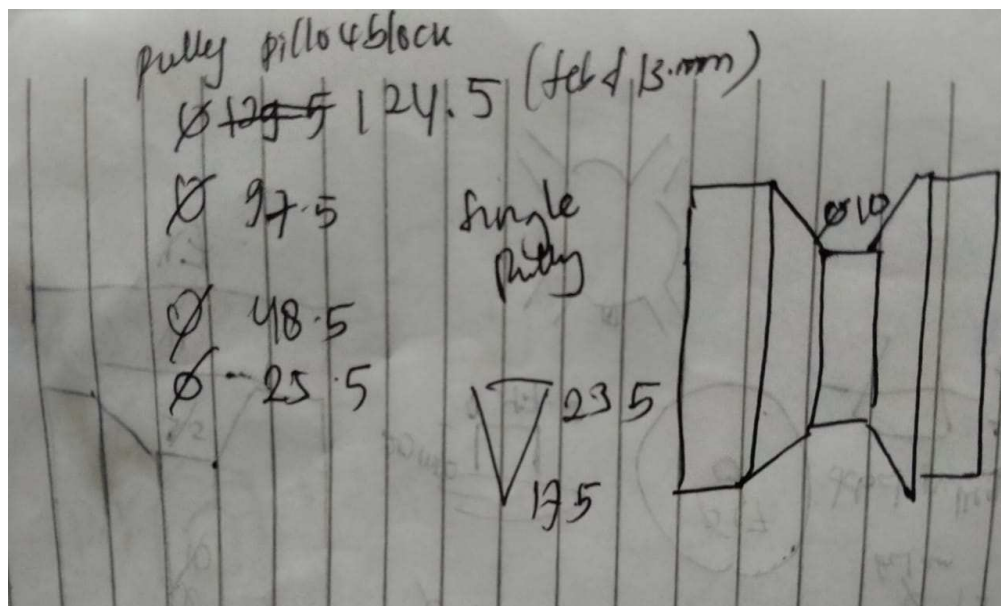 pully pillowblock
Ø 124.5 (
13.mm)
Ø 97.5
Ø 48.5
Ø 25.5
Single
pully
23 5
17 5
Ø10